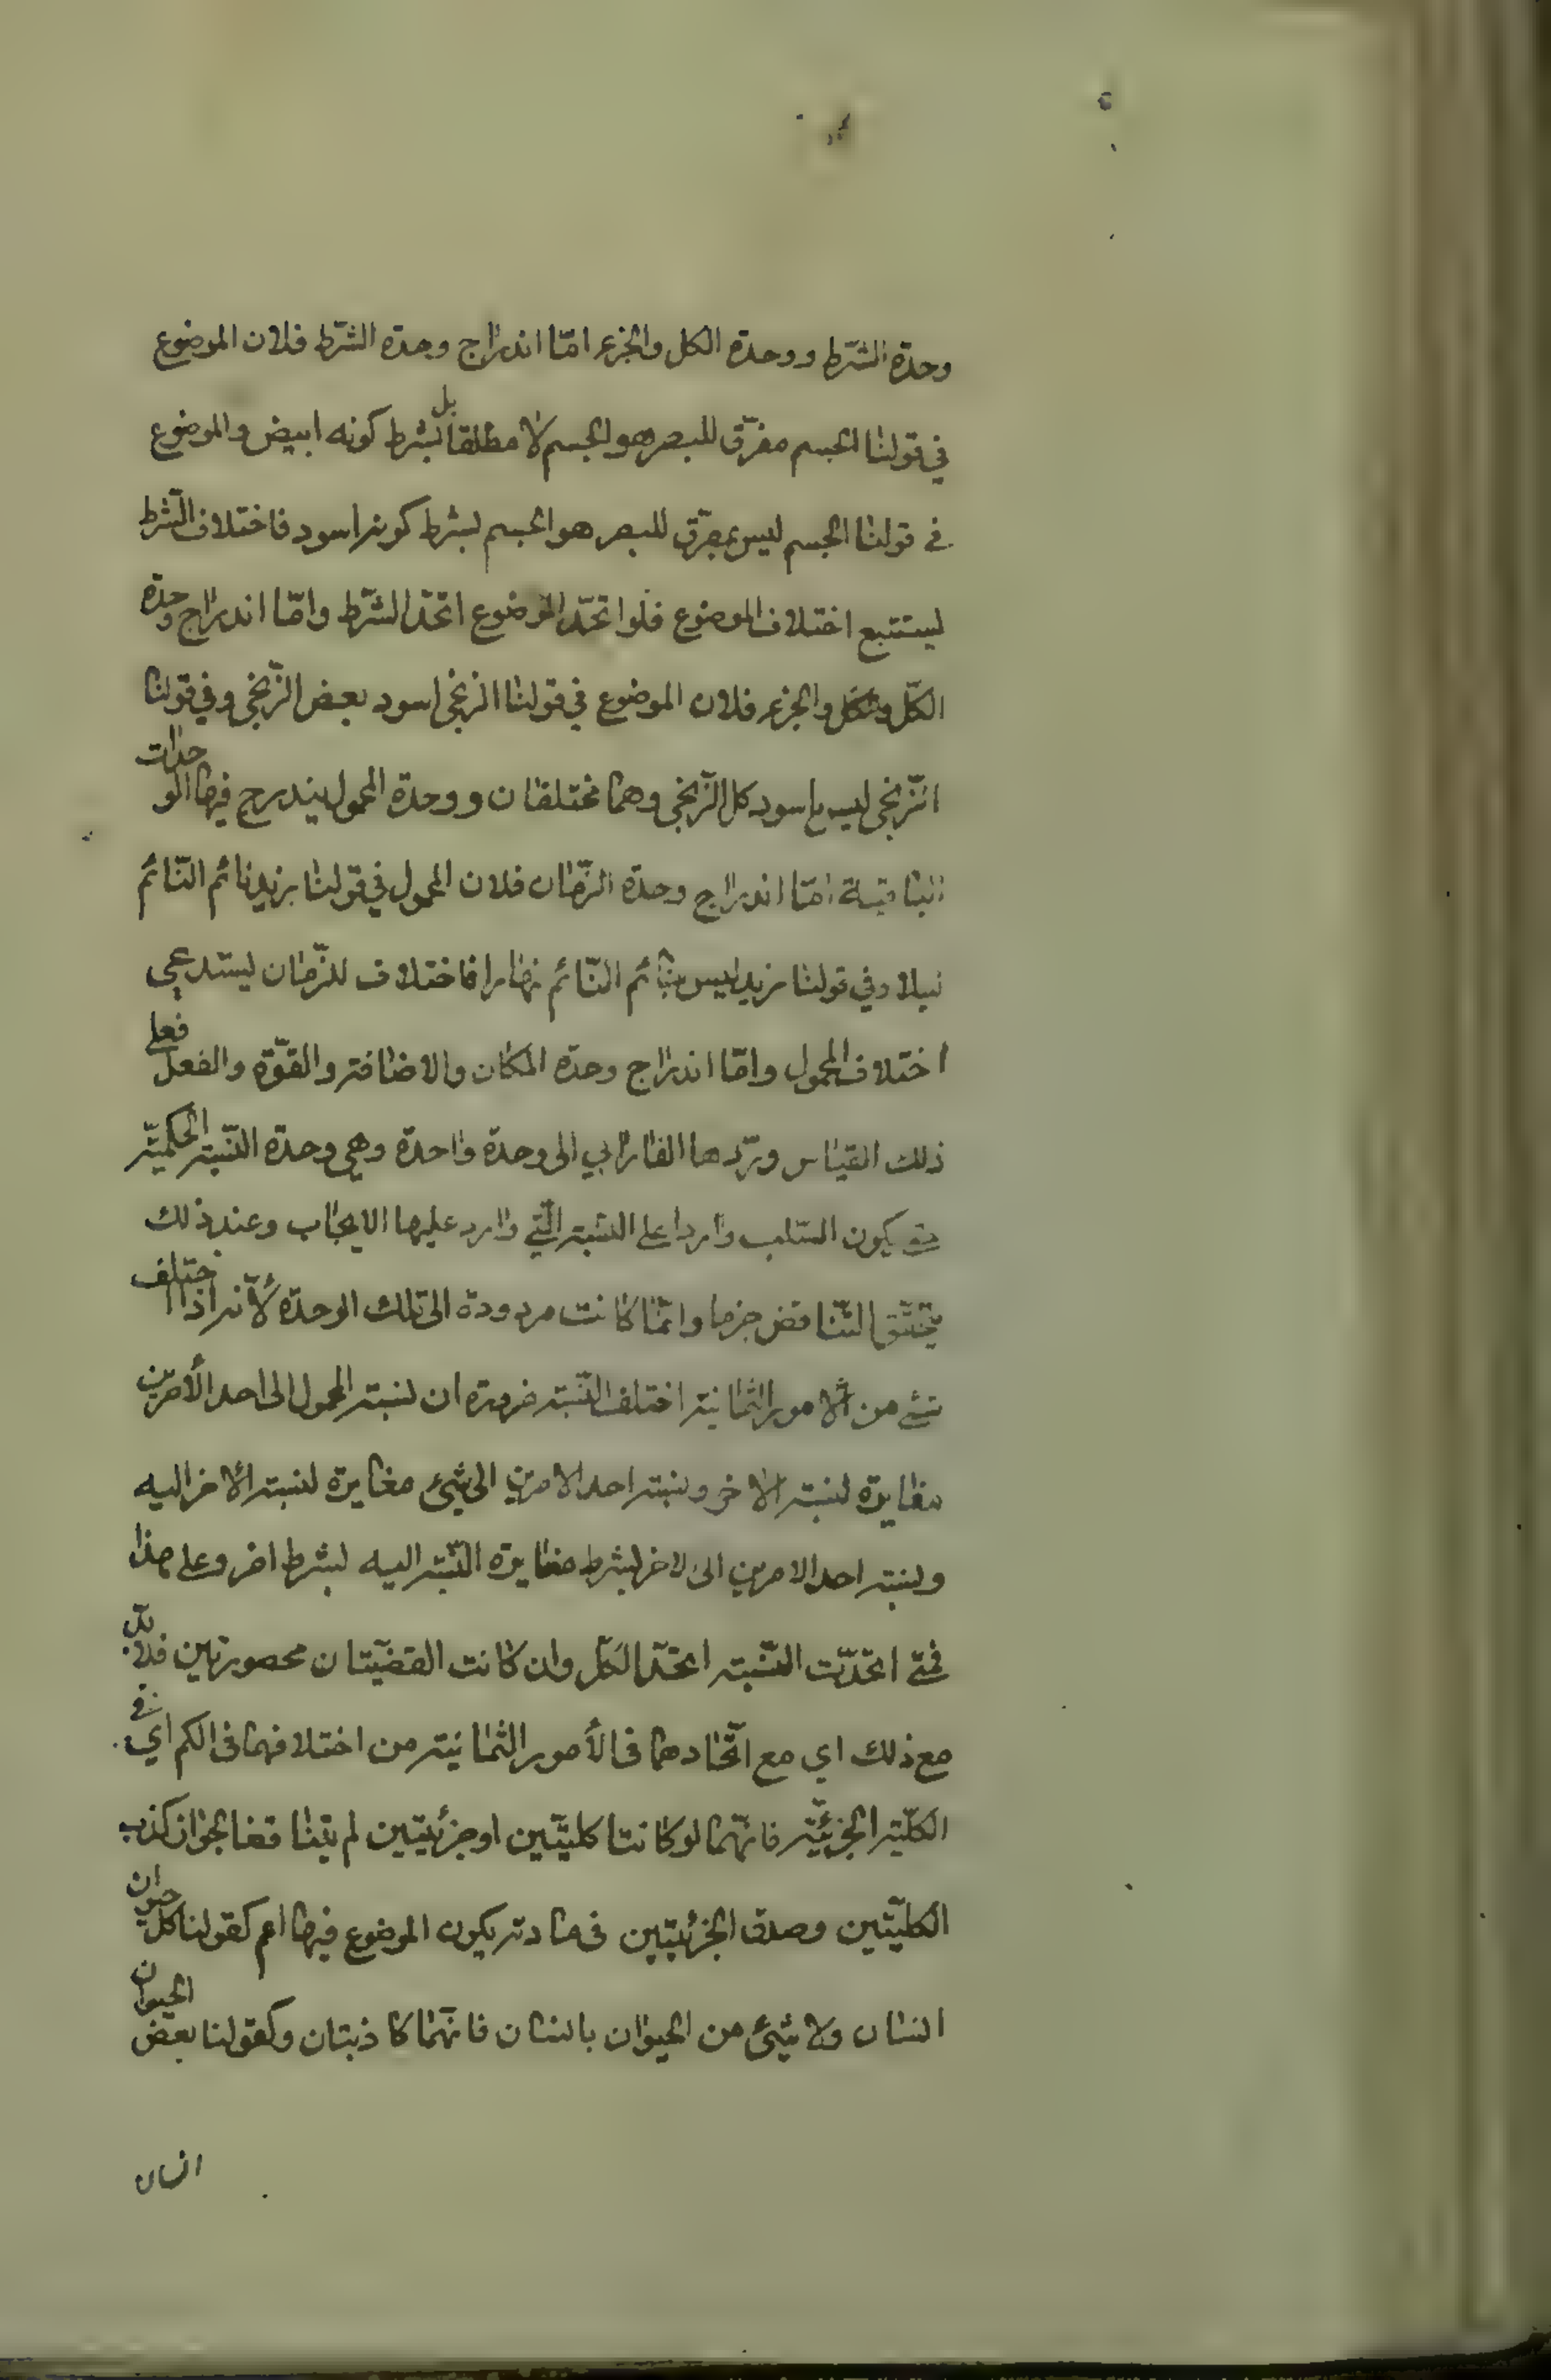 وحدة الشرط ووحدة الكل والجزء امّا اندراج وحدة الشرط فلان الموضوع
في قولنا الجسم مفرّق للبصر هو الجسم لا مطلقا بل بشرط كونه ابيض والموضوع
في قولنا الجسم ليس بمفرّق للبصر هو الجسم بشرط كونه اسود فاختلاف الشّرط
يستتبع اختلاف الموضوع فلو اتحّد الموضوع اتحّد الشّرط وامّا اندراج وحدة
الكلّ والجزء فلان الموضوع في قولنا الزنجي اسود بعض الزّنجي وفي قولنا
الزّنجي ليس باسود كل الزّنجي وهما مختلفان ووحدة المحمول يندرج فيها الوحدات
الباقية امّا اندراج وحدة الزّمان فلان المحمول في قولنا زيد نائم النّائم
ليلا وفي قولنا زيد ليس بنائم النّائم نهارا فاختلاف الزّمان يستدعي
اختلاف المحمول وامّا اندراج وحدة المكان والاضافة والقوّة والفعل فعلى
ذلك القياس وردّها الفارابي الى وحدة واحدة وهي وحدة النّسبة الحكميّة
حتى يكون السّلب واردا على النسبة الّتي وارد عليها الايجاب وعند ذلك
يتحقّق التّناقض جزما وانّما كانت مردودة الى تلك الوحدة لأنّه اذا اختلف
شئ من الامور الثمانية اختلف النّسبة ضرورة ان نسبة المحمول الى احد الأمرين
مغايرة لنسبة الاخر ونسبة احد الامرين الى شيئ مغايرة لنسبة الاخر اليه
ونسبة احد الامرين الى الاخر بشرط مغايرة النّسبة اليه بشرط اخر وعلى هذا
فمتى اتحدّت النّسبة اتحّد الكلّ وان كانت القضيّتان محصورتين فلا بدّ
مع ذلك اي مع اتّحادهما في الأمور الثّمانية من اختلافهما في الكم اي في
الكلّية الجزئيّة فانّهما لو كانتا كليّتين او جزئيتين لم يتناقضا لجواز كذب
الكليّتين وصدق الجزئيتين في مادة يكون الموضوع فيها اعم كقولنا كل حيوان
انسان ولا شيئ من الحيوان بانسان فانّهما كاذبتان وكقولنا بعض الحيوان
انسان